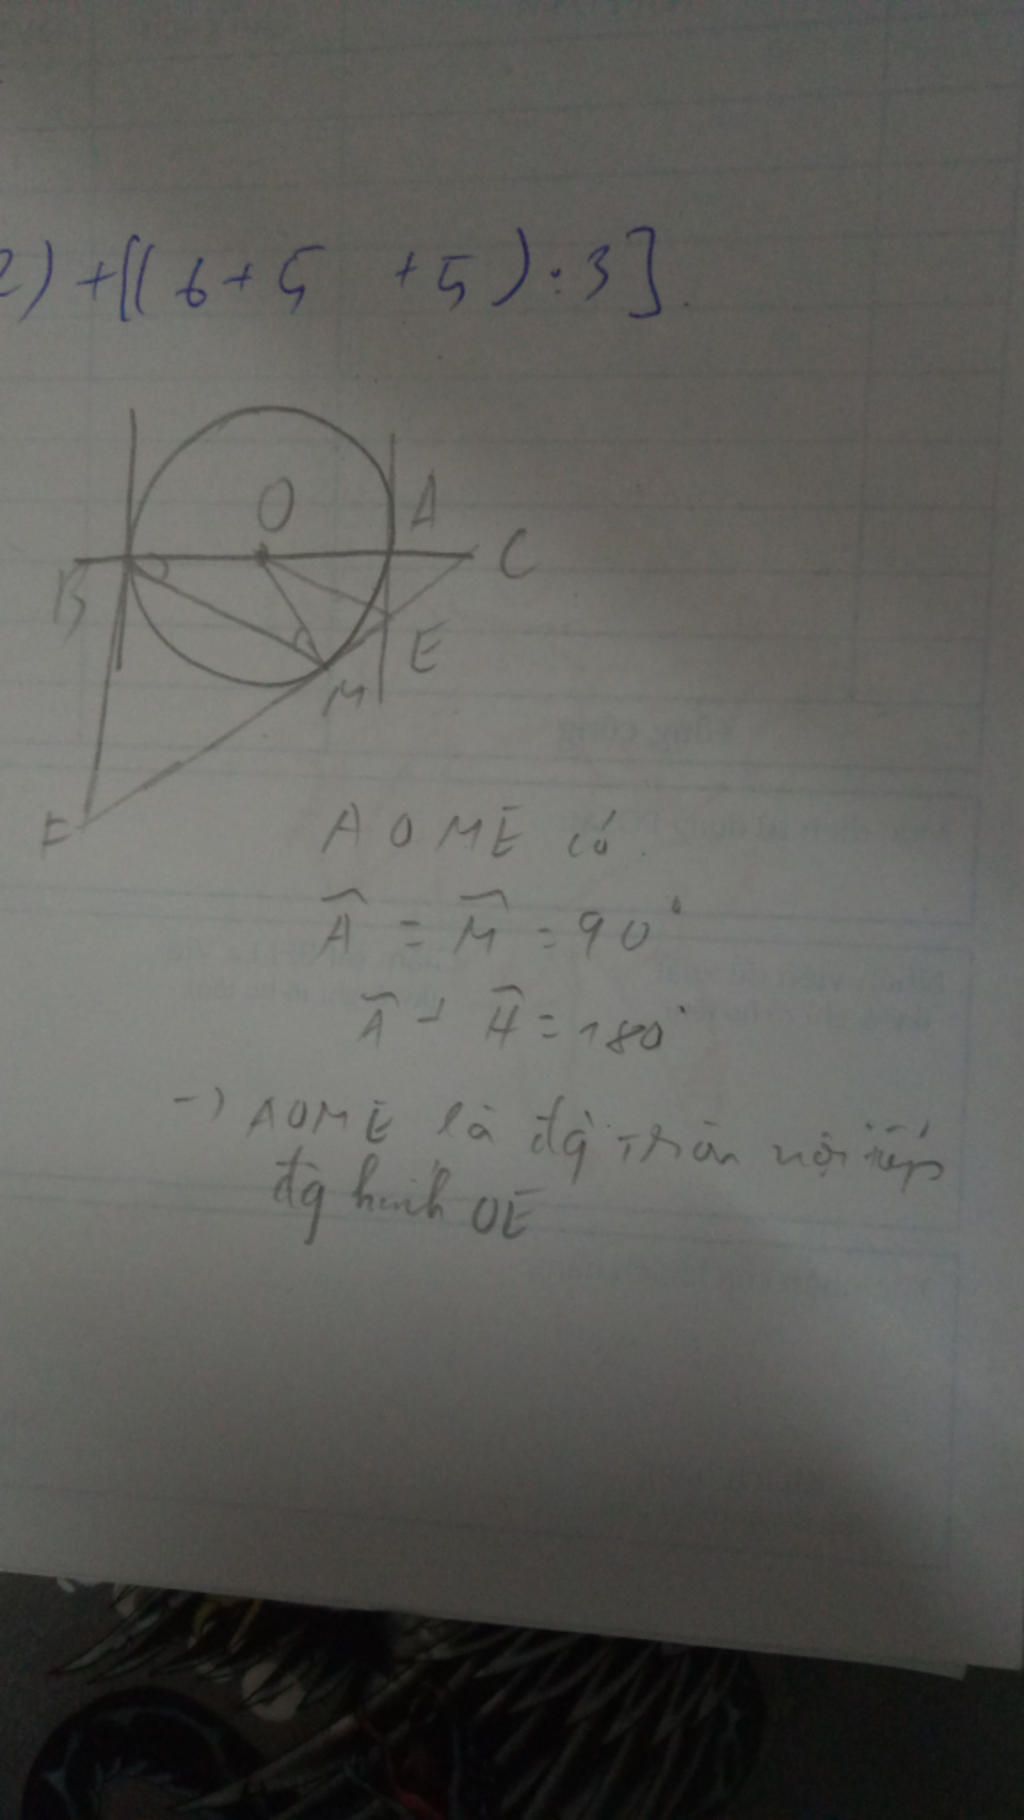 2) + [(6 + 5 + 5) : 3].
O
A
C
B
E
M
F
AOME có
Â = M̂ = 90°
Â + Ĥ = 180°
-> AOME là đg tròn nội tiếp
đg kính OE